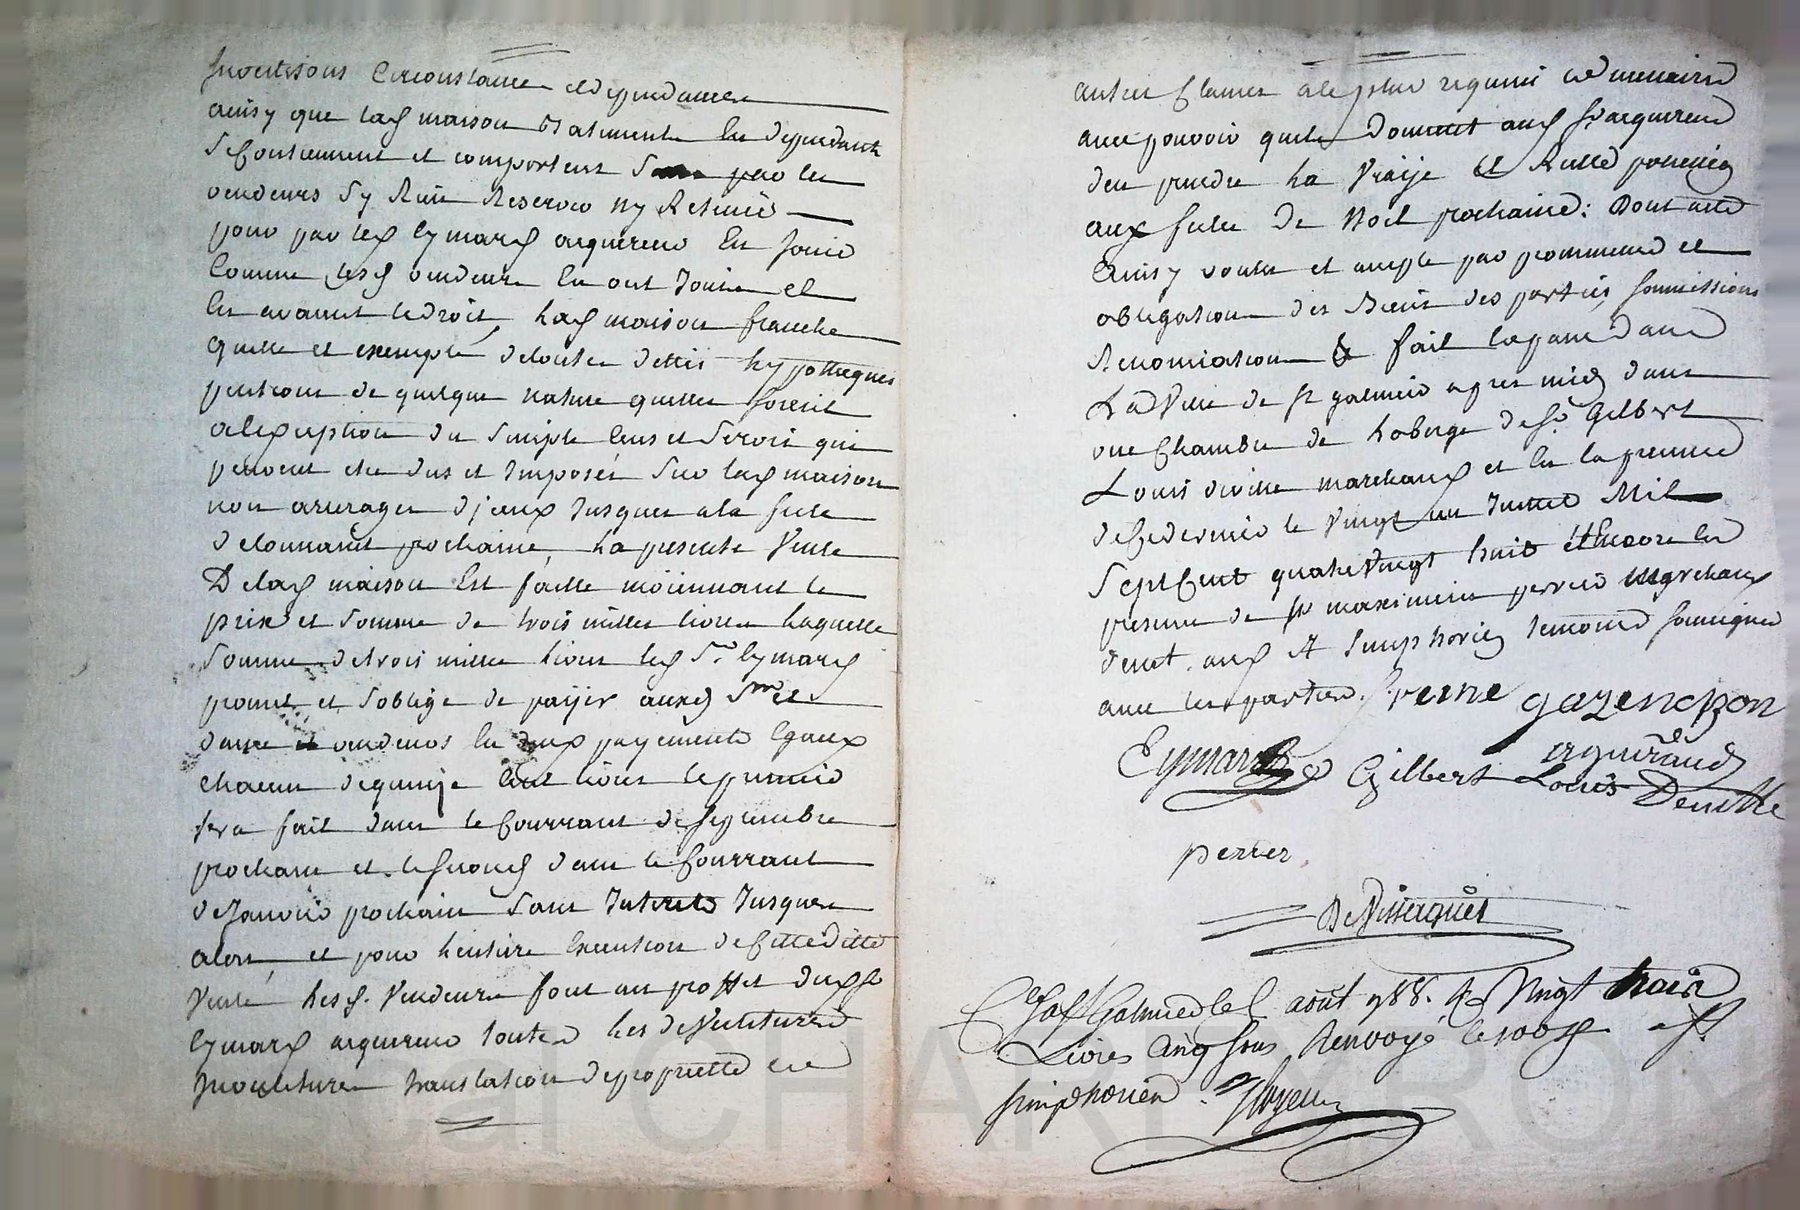 circonstances et dependances
ainsy que lad maison Batiments En dependants
se Contiennent et comportent par les
vendeurs sy Rien Reserver ny Retenir
pour par led Eymard acquereur En jouir
Comme lesd vendeurs En ont Joui et
En avaient le droit, Lad maison franche
quitte et exempte de toutes dettes hypotheques
pentions de quelque nature quelles soient
a lexception du simple Cens et servis qui
peuvent etre dus et Imposés sur lad maison
non arrerages d'iceux Jusques a la feste
de prochaine, La presente Vente
De lad maison Est faitte moiennant le
prix et somme de trois milles livres Laquelle
somme de trois mille livres led Sr Eymard
promet et soblige de payer auxd Srs et
dame vendeurs En deux payements Egaux
chacun de quinze Cent livres le premier
sera fait dans le Courrant de
prochain et le second dans le Courrant
de Janvier prochain sans Interets Jusques
alors, et pour Lentiere Execution de Cette ditte
Vente, Lesd. Vendeurs font au proffit dud Sr
Eymard acquereur toutes Les deVetitures
Investitures translation de proprietté et
autres Clauses a le plus requises et necessaires
avec pouvoir quils Donnent aud Sr acquereur
den prendre La Vraije et Reelle
aux festes de Noel prochaines: Dont acte
Ainsy voulu et accepté par promesses et
obligations des Biens des parties soumissions
Renonciations & fait et passé dans
La Ville de St galmier apres midy dans
une Chambre de Loberge de Sr Gilbert
Louis deville marchand et En la presence
de Ce dernier le Vingt un Juillet Mil
sept Cent quatre Vingt huit et Encore En
presence de Sr maximin perrier Marchand
aud St Simphorien temoins soussignés
avec les parties. gazenchon
Eymard Gilbert Louis Deville
perrer
Ce a St Galmier le août 788. Rs Vingt trois
Livres Cinq sous Renvoyé le 100e a St
simphorien.